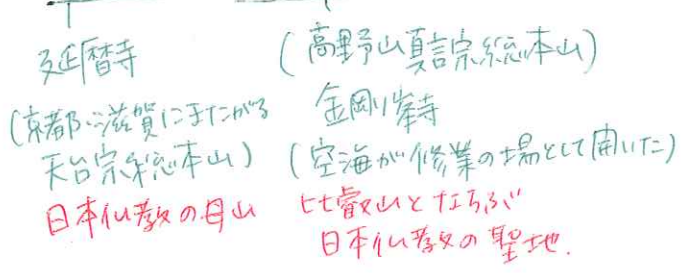 延暦寺
(京都・滋賀にまたがる
天台宗総本山)
日本仏教の母山
(高野山真言宗総本山)
金剛峯寺
(空海が修業の場として開いた)
比叡山とならぶ
日本仏教の聖地.